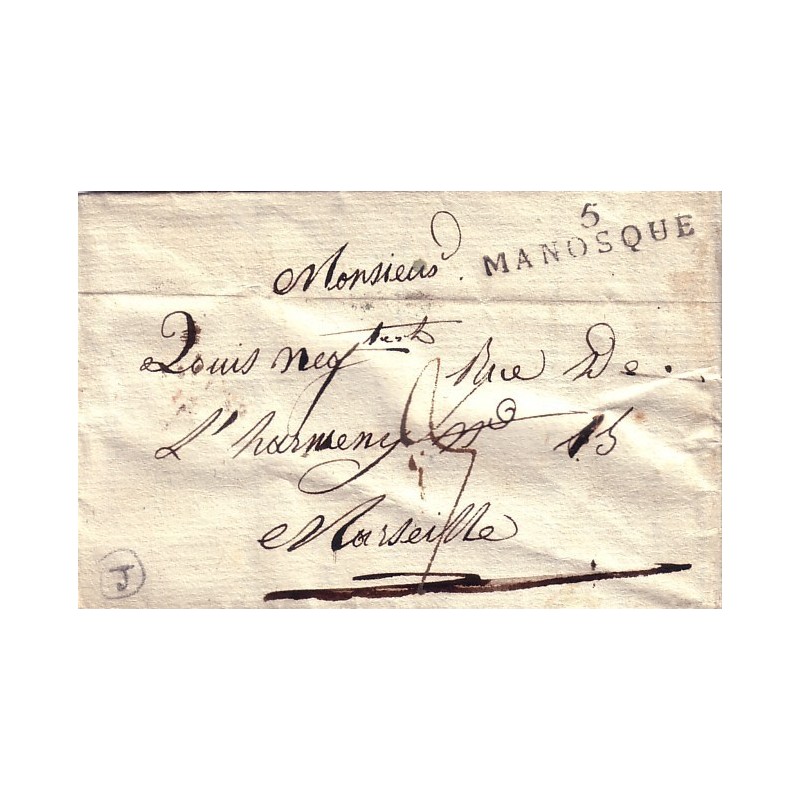 5
MANOSQUE
Monsieur
Louis neg Rue De
L'harmeny nº 15
Marseille
J